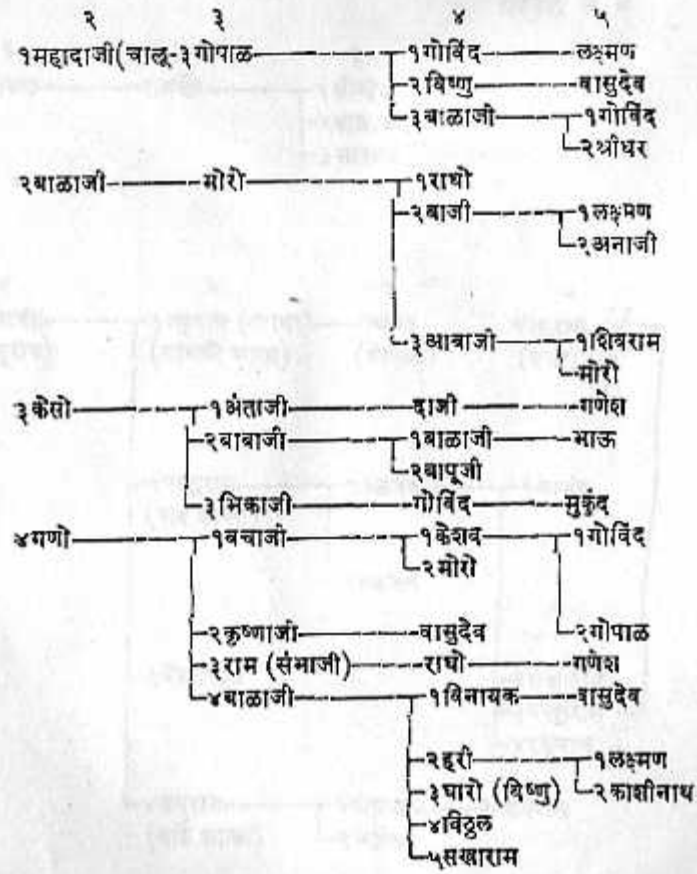 २ ३ ४ ५
१महादाजी(चालू-३गोपाळ १गोविंद लक्ष्मण
२विष्णु वासुदेव
३बाळाजी १गोविंद
२श्रीधर
२बाळाजी मोरो १राघो
२बाजी १लक्ष्मण
२अनाजी
३आबाजी १शिवराम
मोरो
३केसो १अंताजी दाजी गणेश
२बाबाजी १बाळाजी भाऊ
२बापूजी
३भिकाजी गोविंद मुकुंद
४गणो १बचाजी १केशव १गोविंद
२मोरो
२कृष्णाजी वासुदेव २गोपाळ
३राम (संभाजी) राघो गणेश
४बाळाजी १विनायक वासुदेव
२हरी १लक्ष्मण
३घारो (विष्णु) २काशीनाथ
४विठ्ठल
५सखाराम